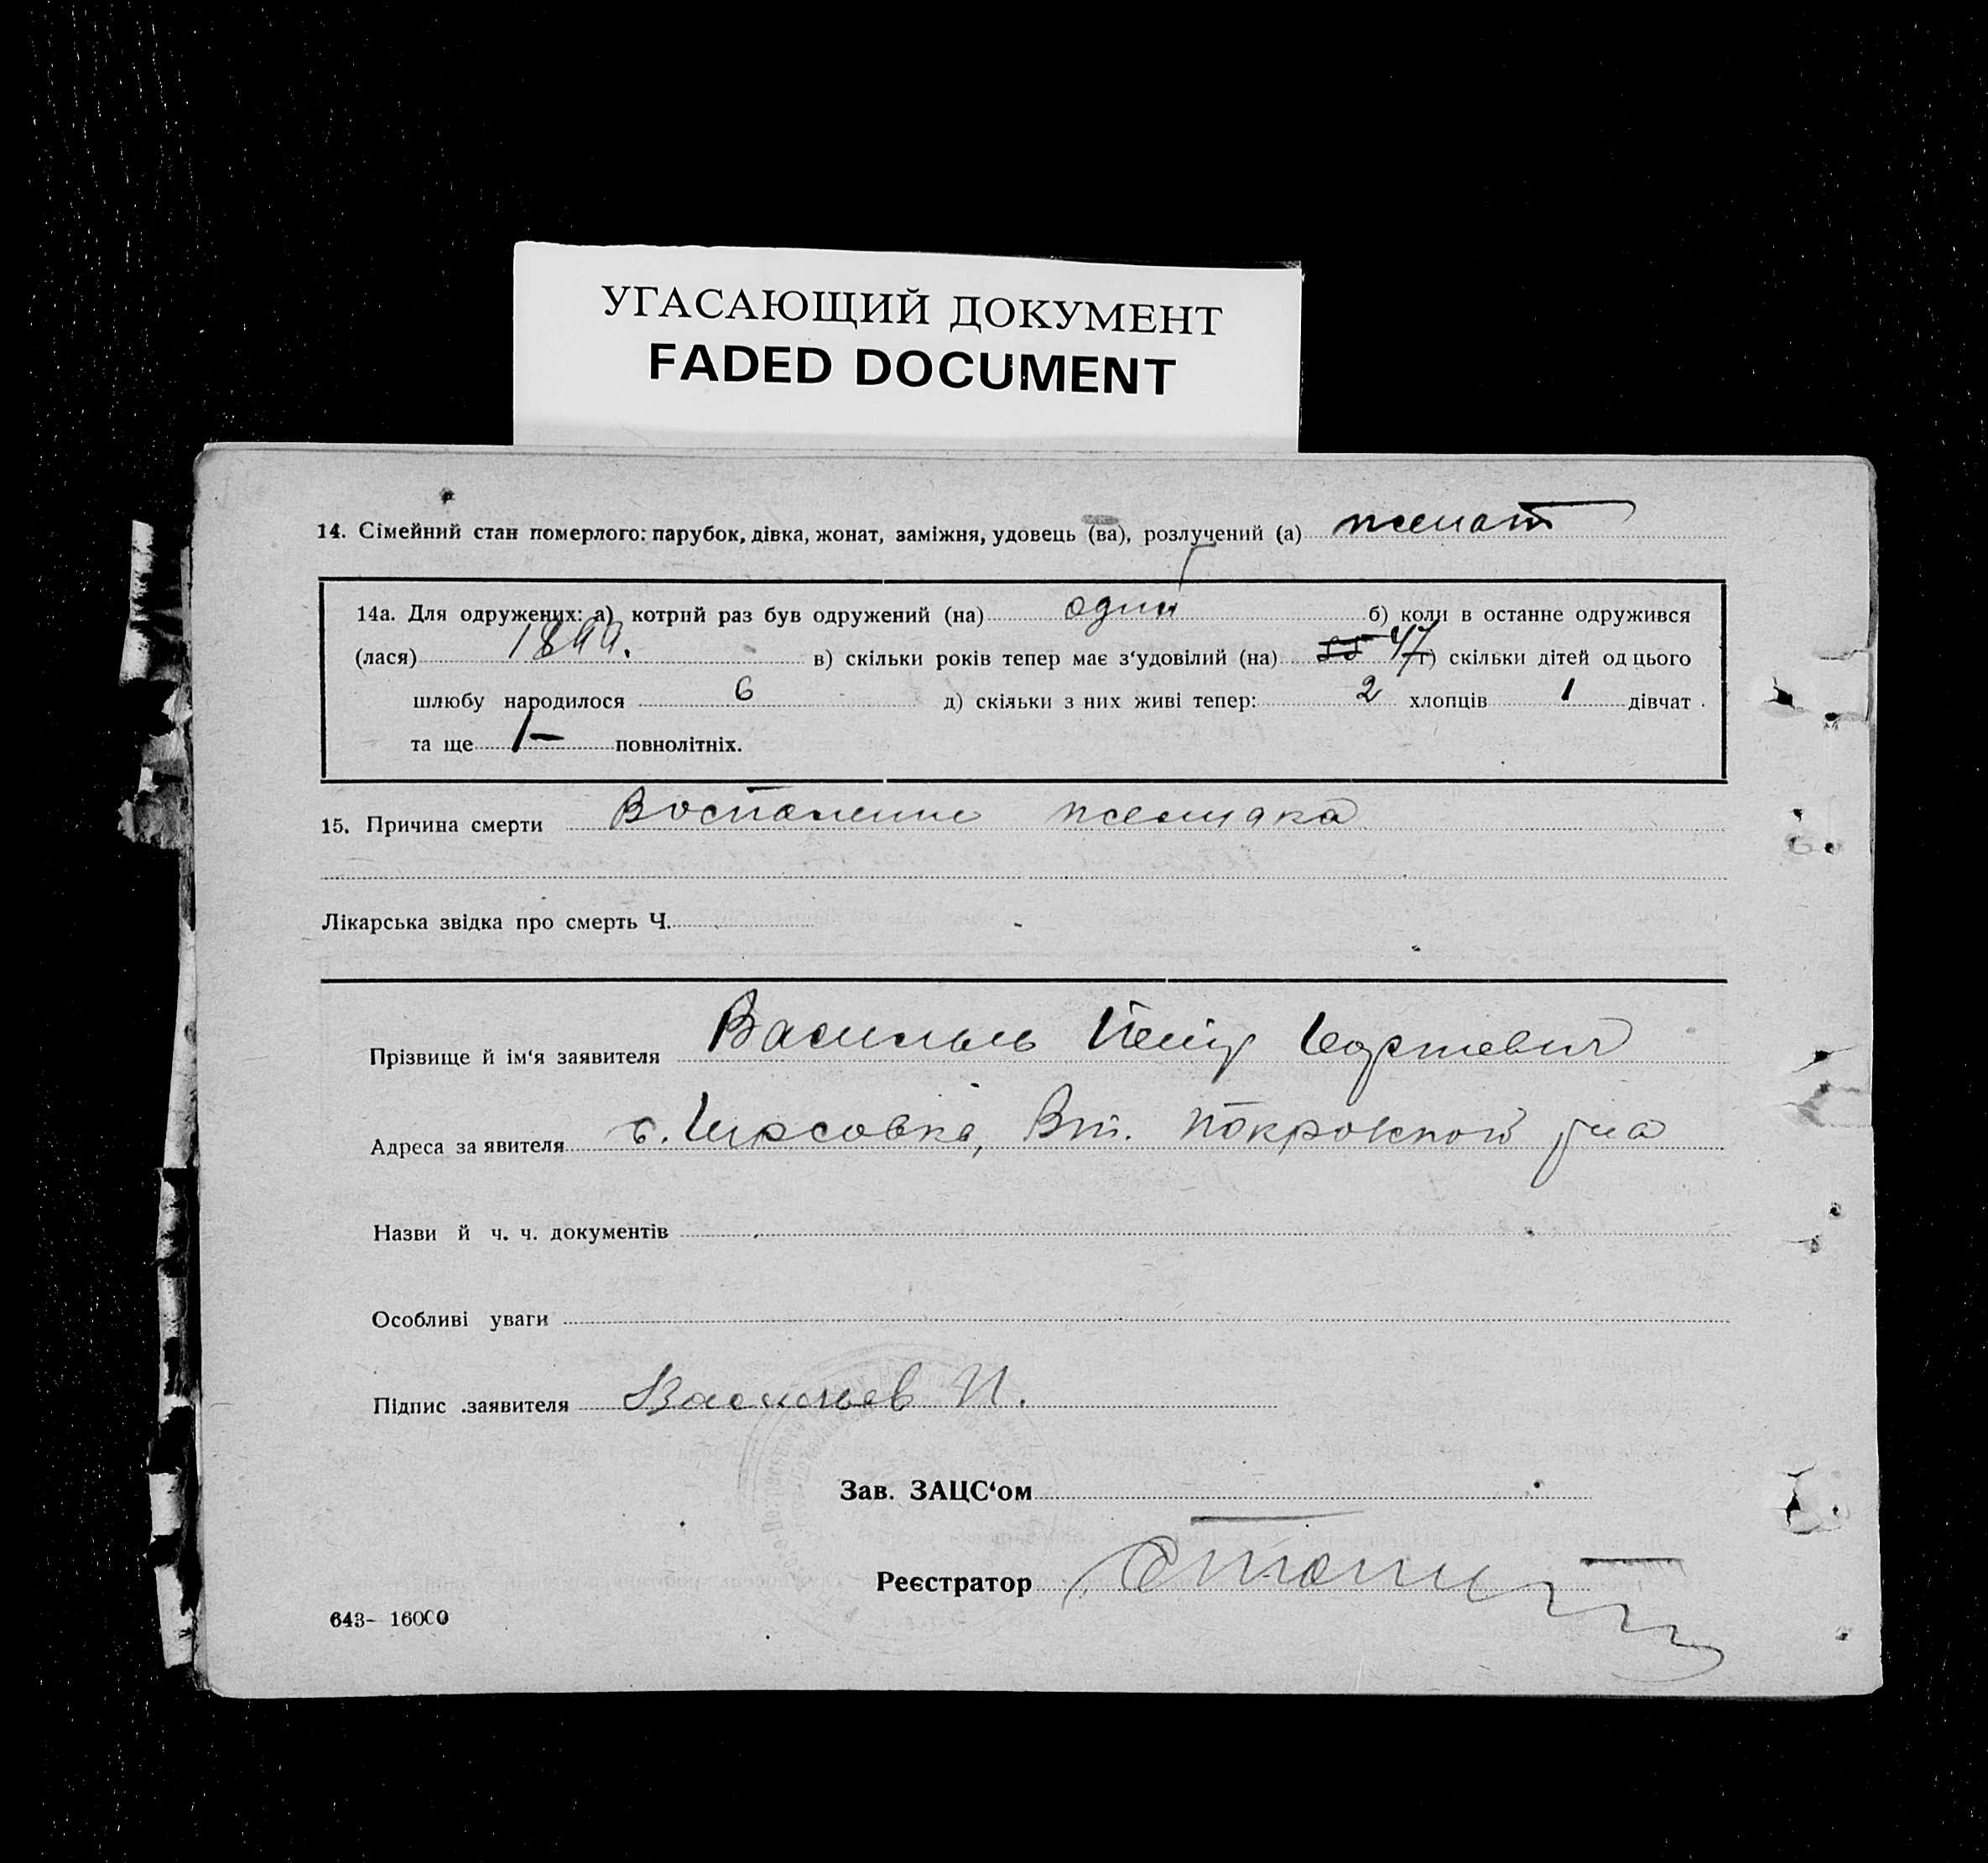 УГАСАЮЩИЙ ДОКУМЕНТ
FADED DOCUMENT
14. Сімейний стан померлого: парубок, дівка, жонат, заміжня, удовець (ва), розлучений (а) женат
14а. Для одружених: а) котрий раз був одружений (на) один б) коли в останнє одружився
(лася) 1899. в) скільки років тепер має з‘удовілий (на) 47 г) скільки дітей од цього
шлюбу народилося 6 д) скільки з них живі тепер: 2 хлопців 1 дівчат
та ще 1- повнолітніх.
15. Причина смерти Воспаление желудка
Лікарська звідка про смерть Ч.
Прізвище й ім‘я заявителя Васильев
Адреса заявителя с. Вт. Покровского р-на
Назви й ч. ч. документів
Особливі уваги
Підпис заявителя Васильев И.
Зав. ЗАЦС‘ом
Реєстратор
643- 16000